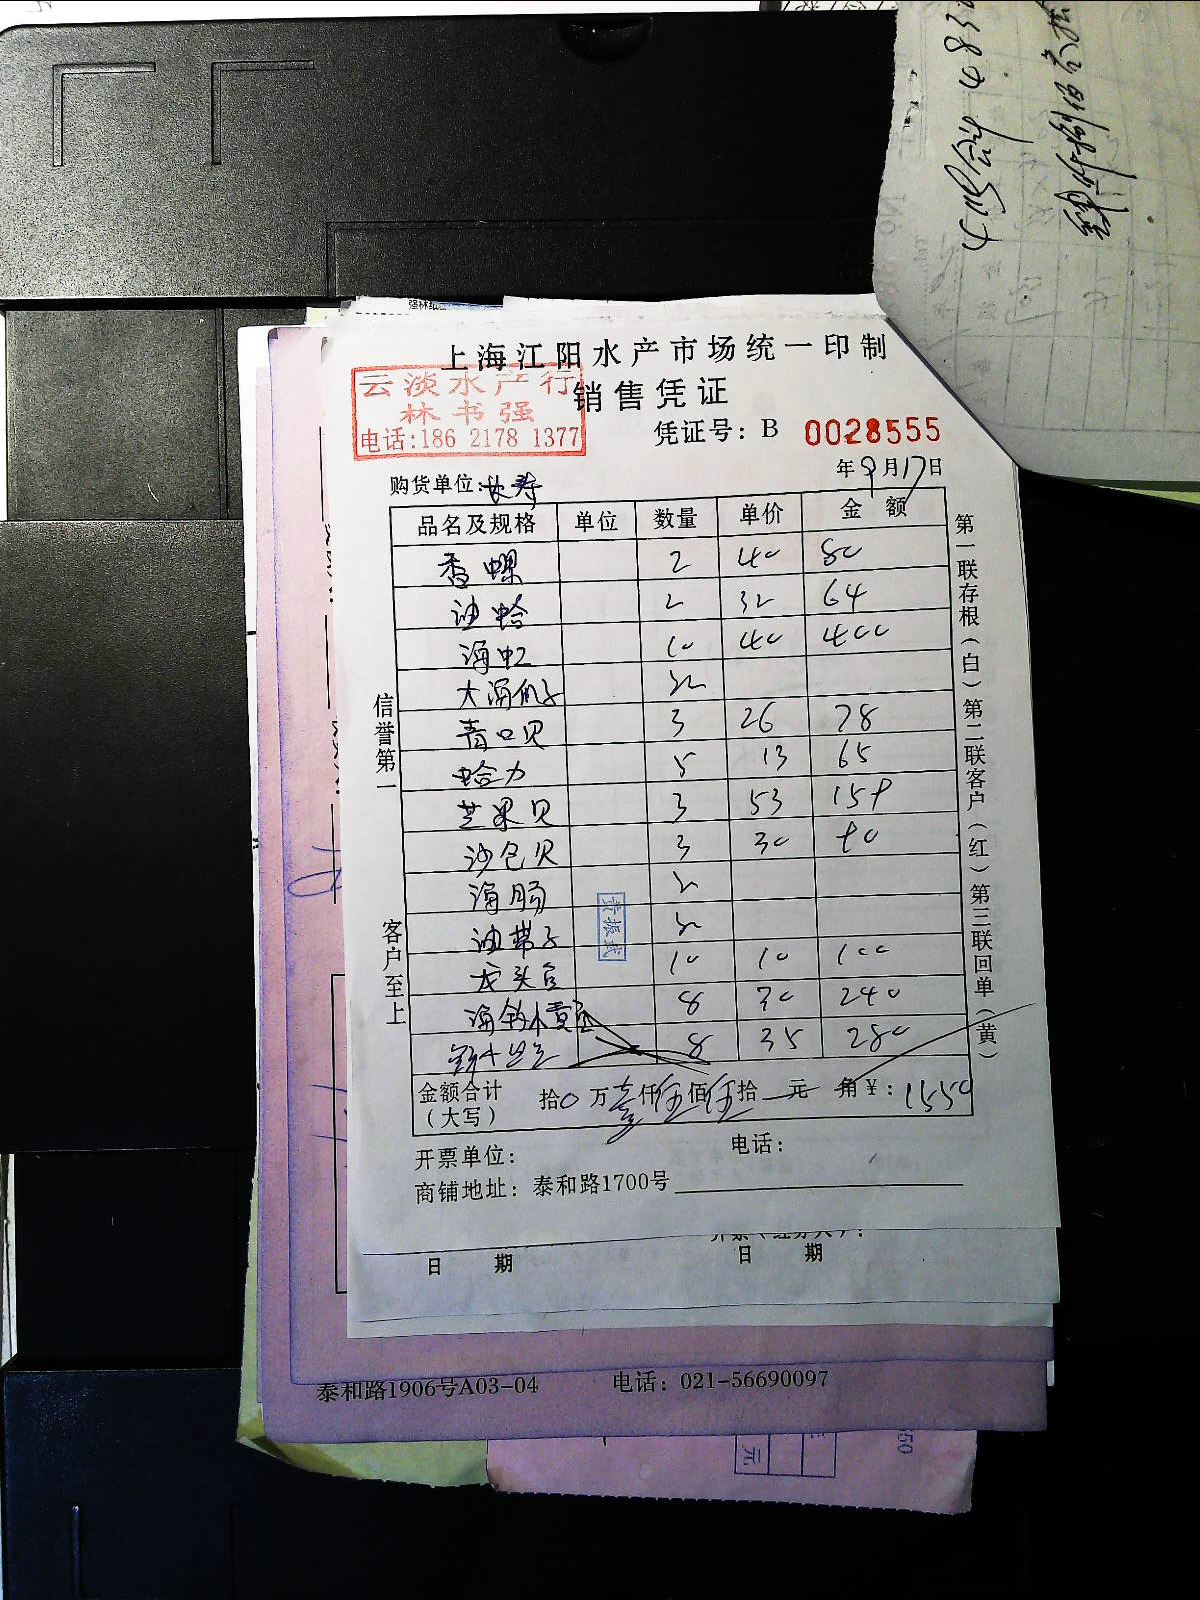 强林纸
上海江阳水产市场统一印制
销售凭证
云淡水产行
林书强
电话:186 2178 1377
凭证号: B 0028555
年9月17日
购货单位:长寿
品名及规格 单位 数量 单价 金额
香螺 2 40 80
油蛤 2 32 64
海虹 10 40 400
大海瓜子
青口贝 3 26 78
蛤力 5 13 65
芒果贝 3 53 159
沙包贝 3 30 90
海肠
油带子
龙头鱼 10 10 100
海钓小黄鱼 8 30 240
8 35 280
金额合计
（大写）
拾0万壹仟伍佰伍拾 元 角¥: 1550
开票单位: 电话:
商铺地址: 泰和路1700号
信誉第一
客户至上
第一联存根（白）第二联客户（红）第三联回单（黄）
黄振武
日 期 日 期
泰和路1906号A03-04 电话: 021-56690097
元
50